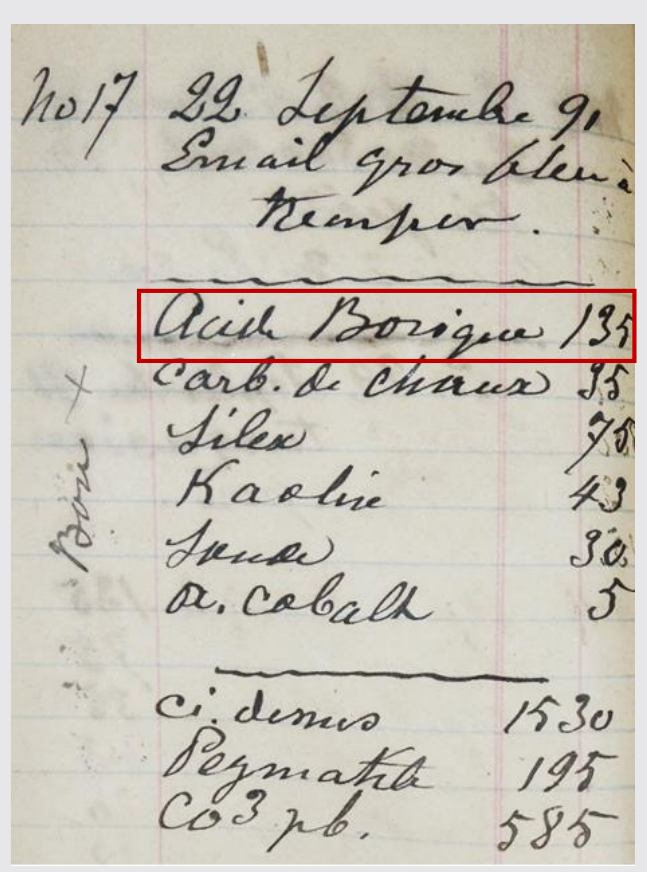 No 17 22 Septembre 91
Email gros bleu à
tremper.
Acide Borique 135
Carb. de chaux 35
Silex 75
Kaolin 43
Soude 30
ox. cobalt 5
ci. dessus 1530
Pegmatite 195
CO3 pb. 585
Bon X